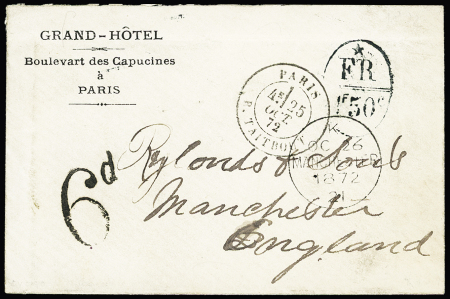 GRAND-HÔTEL
Boulevard des Capucines
à
PARIS
PARIS
4E 25
OCT.
72
P. TAITBOUT
FR
1F 50c
OC 26
MANCHESTER
1872
6d
Rylonds & Sons
Manchester
England